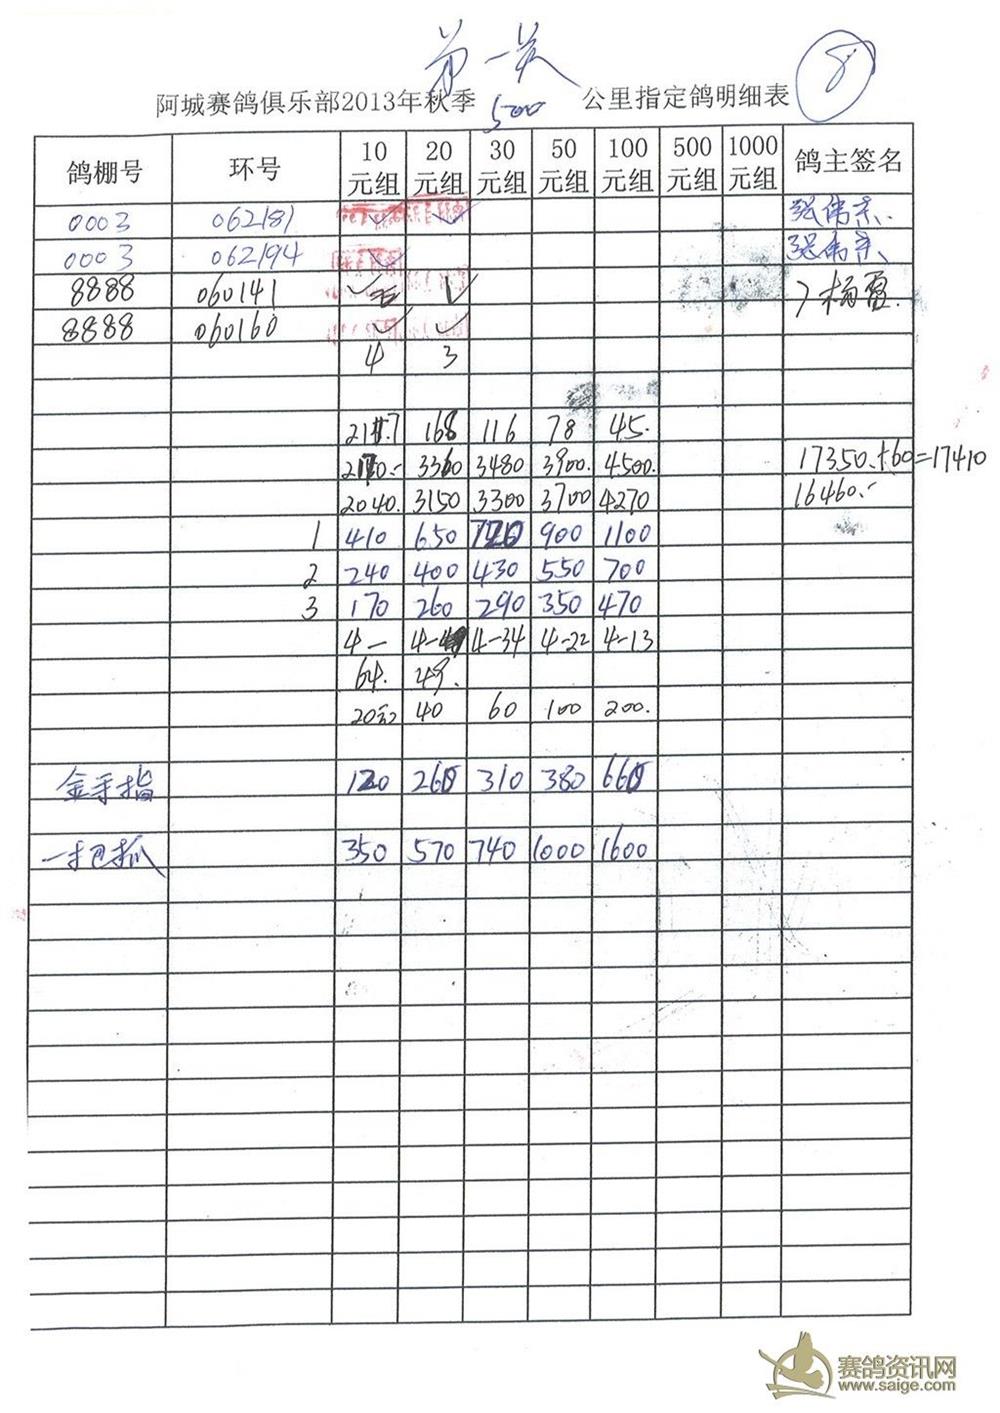 第一关
8
阿城赛鸽俱乐部2013年秋季 500 公里指定鸽明细表
鸽棚号 环号 10元组 20元组 30元组 50元组 100元组 500元组 1000元组 鸽主签名
0003 062181 ✓ ✓
0003 062194 ✓
8888 060141 ✓ ✓
8888 060160 ✓ ✓
4 3
217 168 116 78 45.
2170.- 3360 3480 3900. 4500. 17350.+60=17410
2040. 3150 3300 3700 4270 16460.-
1 410 650 720 900 1100
2 240 400 430 550 700
3 170 260 290 350 470
4- 4- 4-34 4-22 4-13
64. 49.
20元 40 60 100 200.
金手指 120 260 310 380 660
一把抓 350 570 740 1000 1600
赛鸽资讯网
www.saige.com